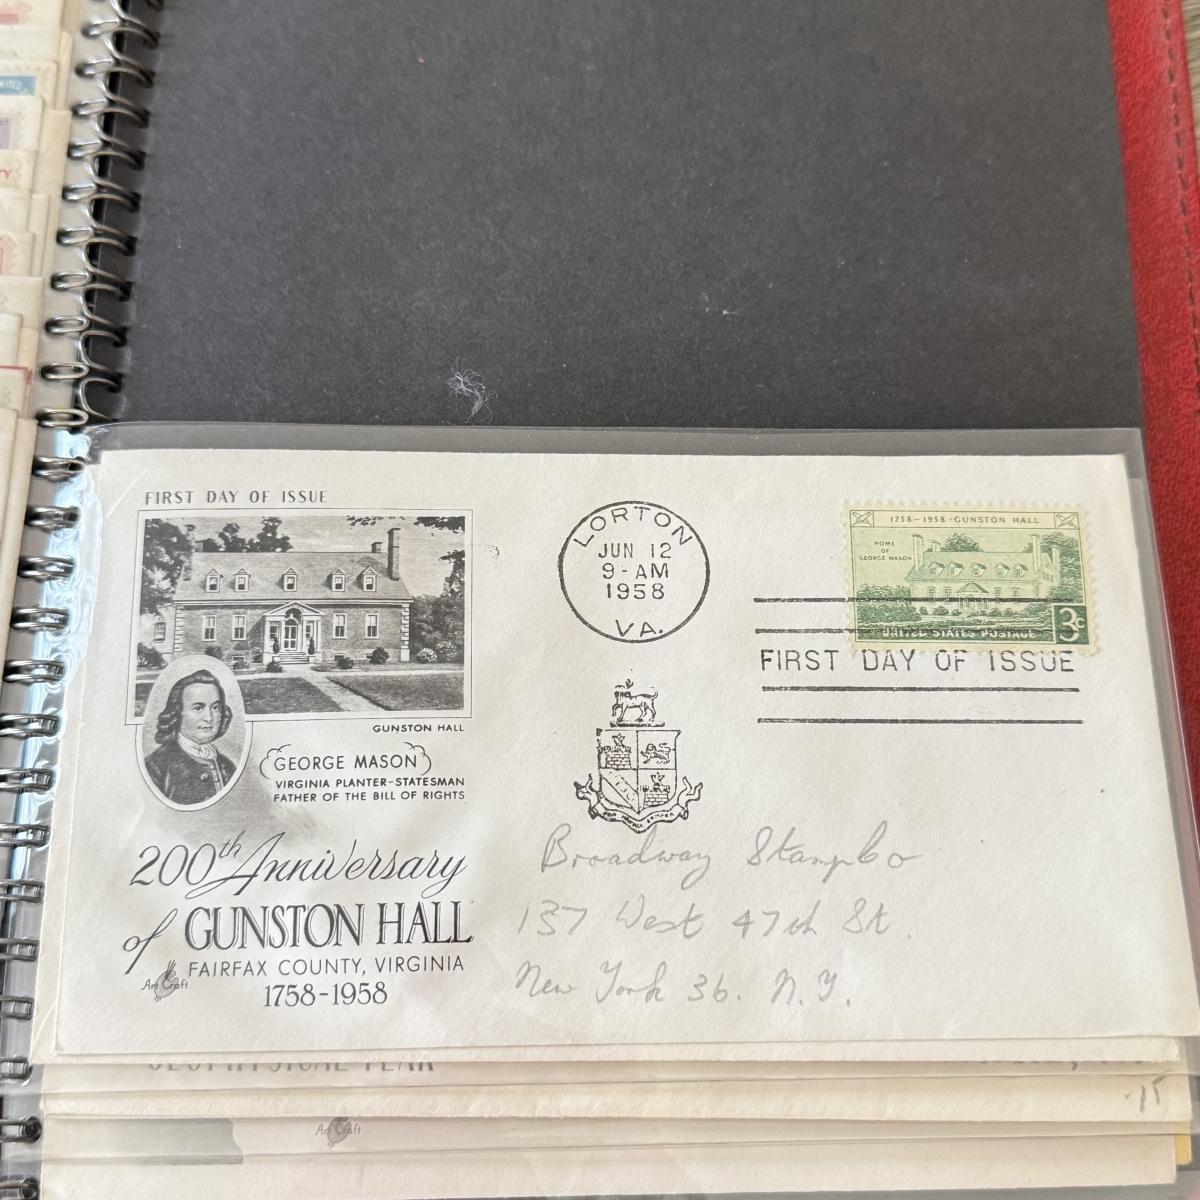 FIRST DAY OF ISSUE
GUNSTON HALL
GEORGE MASON
VIRGINIA PLANTER-STATESMAN
FATHER OF THE BILL OF RIGHTS
200th Anniversary
of GUNSTON HALL
FAIRFAX COUNTY, VIRGINIA
1758-1958
Art Craft
LORTON
JUN 12
9-AM
1958
VA.
1758-1958·GUNSTON HALL
HOME
OF
GEORGE MASON
3c
UNITED STATES POSTAGE
FIRST DAY OF ISSUE
Broadway Stamp Co
137 West 47th St.
New York 36. N.Y.
GEOPHYSICAL YEAR
15
Art Craft